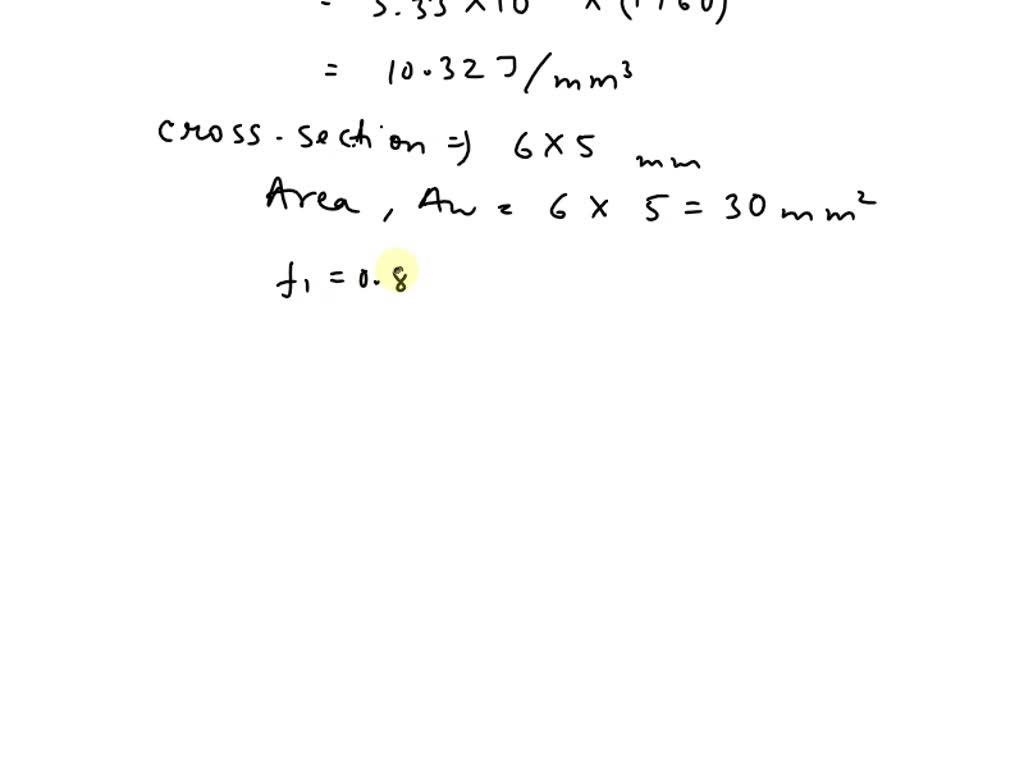 = 3.33 × 10 × (1760)
= 10.32 J/mm³
cross-section ⇒ 6 × 5 mm
Area, Aw = 6 × 5 = 30 mm²
f₁ = 0.8